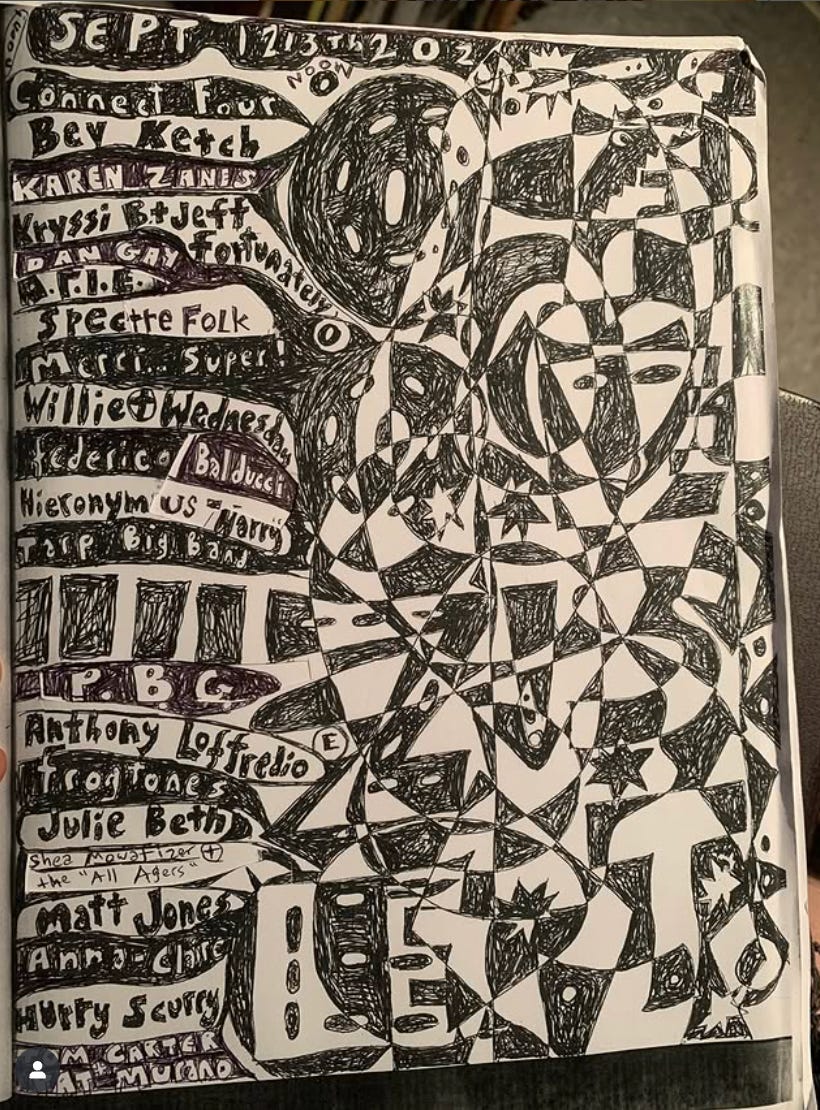 SEPT 1213Th202
NOON
Connect Four
Bev Ketch
KAREN ZANES
Kryssi B+Jeff
fortunately
DAN GAY
A.F.I.E.
Spectre Folk
Merci.. Super!
Willie + Wednesday
federico Balducci
Hieronymus "Harry"
Tarp Big Band
P. B. G
Anthony Loffredio
frogtones
Julie Beth
Shea Mowafizer +
the "All Agers"
Matt Jones
Anna-Claire
Hurry Scurry
M CARTER
AT MURANO